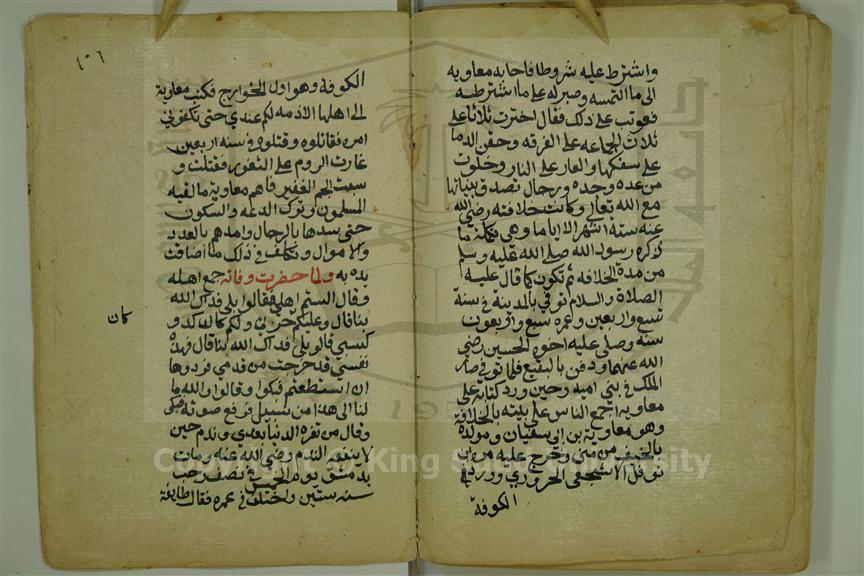 واشترط عليه شروطا فاجابه معاويه
الى ما التمسه وصبر له على ما اشترطه
فعوتب على ذلك فقال اخترت ثلاثا على
ثلاث الجماعه على الفرقه وحقن الدما
على سفكها والعار على النار وخلوت
من عده وحده ورجال تصدق بنياتها
مع الله تعالى وكانت خلافته رضي الله
عنه ستة اشهر الا اياما وهي تكملة ما
ذكره رسول الله صلى الله عليه وسلم
من مدة الخلافه ثم تكون كما قال عليه
الصلاة والسلام توفي بالمدينة في سنة
تسع واربعين وعمره سبع واربعون
سنه وصلى عليه اخوه الحسين رضي
الله عنهما ودفن بالبقيع فلما توفي صار
الملك في بني اميه وحين ورد كتابه على
معاويه اجمع الناس على بيعته بالخلافة
وهو معاوية بن ابي سفيان ومولده
بالخيف من منى وخرج عليه
نوفل الاشجعي الحروري وورد في
الكوفة
١٠٦
الكوفة وهو اول الخوارج فكتب معاوية
الى اهلها الا ذمه لكم عندي حتى تكفوني
امره فقاتلوه وقتلوه وفي سنة اربعين
غارت الروم على الثغور فقتلت و
سبت الجم الغفير فاهم معاوية ما لقيه
المسلمون وترك الدعه والسكون
حتى سدها بالرجال وامدهم بالعدد
والاموال وتكلف في ذلك ما اضاقت
يده به ولما حضرت وفاته جمع اهله
وقال الستم اهلي فقالوا بلى فداك الله
بنا قال وعليكم حزني ولكم كان كدي و
كسبي قالوا بلى فداك الله بنا قال فهذه
نفسي قد خرجت من قدمي فردوها
ان استطعتم فبكوا وقالوا والله ما
لنا الى هذا من سبيل فرفع صوته
وقال من تغره الدنيا بعدي وندم حين
لا ينفعه الندم رضي الله عنه ومات
بدمشق يوم الخميس في نصف رجب
سنه ستين واختلف في عمره فقال طايفة
كان
Copyright © King Saud University